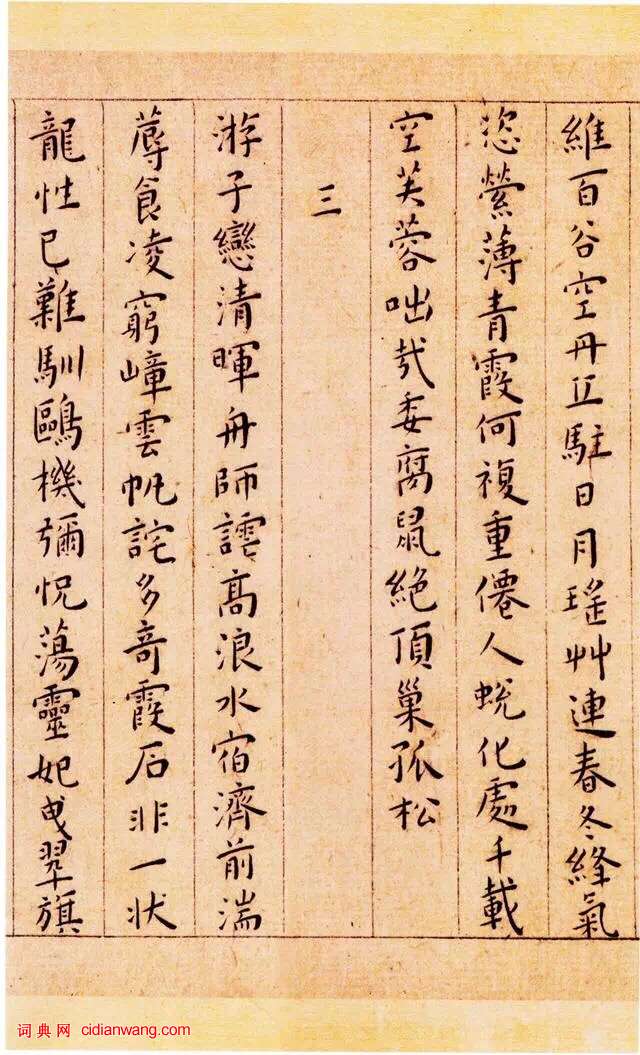 維百谷空丹丘駐日月瑤艸連春冬絳氣
恣縈薄青霞何複重僊人蛻化處千載
空芙蓉咄哉委腐鼠絕頂巢孤松
三
游子戀清暉舟師譁高浪水宿濟前湍
蓐食凌窮嶂雲帆詫多奇霞石非一状
龍性已難馴鷗機彌怳蕩靈妃曳翠旗
词典网 cidianwang.com